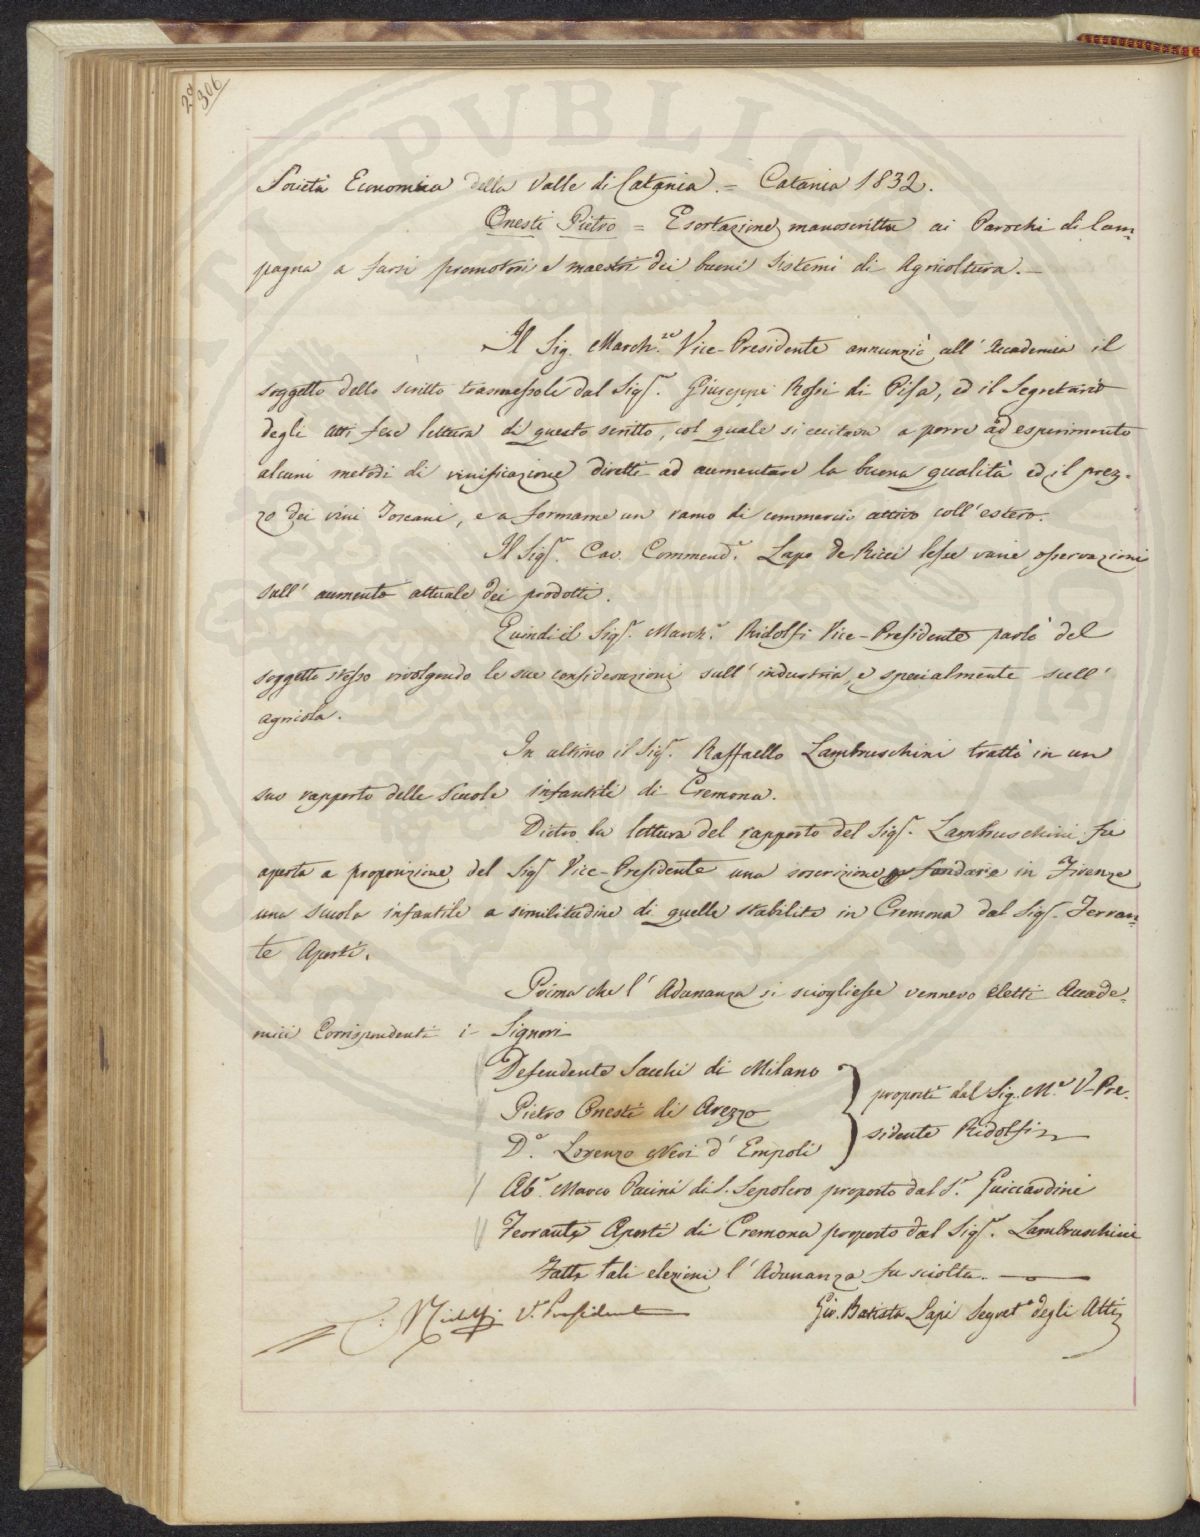 306
Società Economica della Valle di Catania. = Catania 1832.
Onesti Pietro = Esortazione manoscritta ai Parochi di Cam=
pagna a farsi promotori e maestri dei buoni sistemi di Agricoltura. —
Il Sig. March.se Vice-Presidente annunziò all' Accademia il
soggetto dello scritto trasmessole dal Sig.r Giuseppe Rossi di Pisa, ed il Segretario
degli Atti fece lettura di questo scritto, col quale si eccitava a porre ad esperimento
alcuni metodi di vinificazione diretti ad aumentare la buona qualità ed il prez=
zo dei vini Toscani, e a formarne un ramo di commercio attivo coll' estero.
Il Sig.r Cav. Commend.e Lapo de Ricci lesse varie osservazioni
sull' aumento attuale dei prodotti.
Quindi il Sig.r March.e Ridolfi Vice-Presidente parlò del
soggetto stesso rivolgendo le sue considerazioni sull' industria, e specialmente sull'
agricola.
In ultimo il Sig.r Raffaello Lambruschini trattò in un
suo rapporto delle Scuole infantili di Cremona.
Dietro la lettura del rapporto del Sig.r Lambruschini fu
aperta a proposizione del Sig.r Vice-Presidente una soscrizione p fondare in Firenze
una scuola infantile a similitudine di quelle stabilite in Cremona dal Sig.r Ferran=
te Aporti.
Prima che l' Adunanza si sciogliesse vennero eletti Accade=
mici Corrispondenti i Signori
Defendente Sacchi di Milano
Pietro Onesti di Arezzo
D.e Lorenzo Neri d' Empoli
proposti dal Sig. M.e V-Pre=
sidente Ridolfi
Ab.e Marco Pacini di S. Sepolcro proposto dal S.r Guicciardini
Ferrante Aporti di Cremona proposto dal Sig.r Lambruschini
Fatte tali elezioni l' Adunanza fu sciolta. —
C. Ridolfi V. Presidente
Gio. Batista Lapi Segret.o degli Atti
PVBLICE